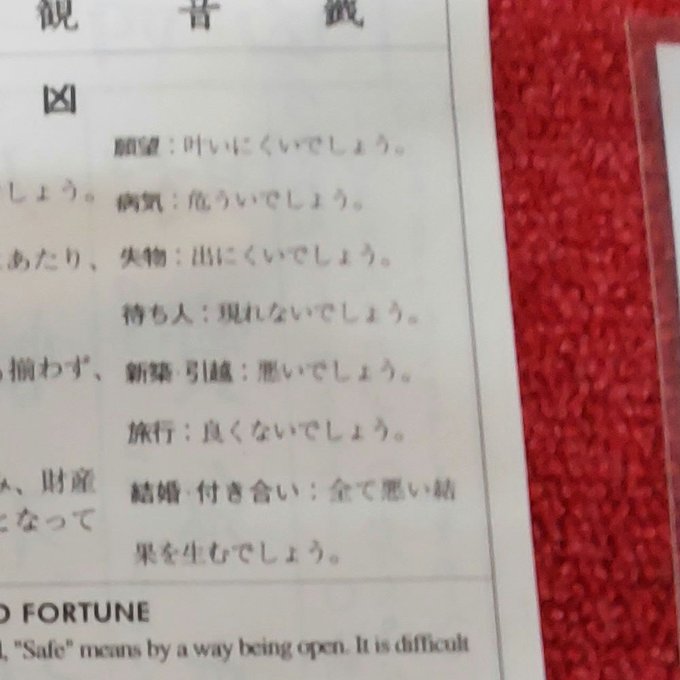 観音籤
凶
願望：叶いにくいでしょう。
しょう。 病気：危ういでしょう。
あたり、 失物：出にくいでしょう。
待ち人：現れないでしょう。
揃わず、 新築・引越：悪いでしょう。
旅行：良くないでしょう。
、財産 結婚・付き合い：全て悪い結
となって 果を生むでしょう。
FORTUNE
"Safe" means by a way being open. It is difficult